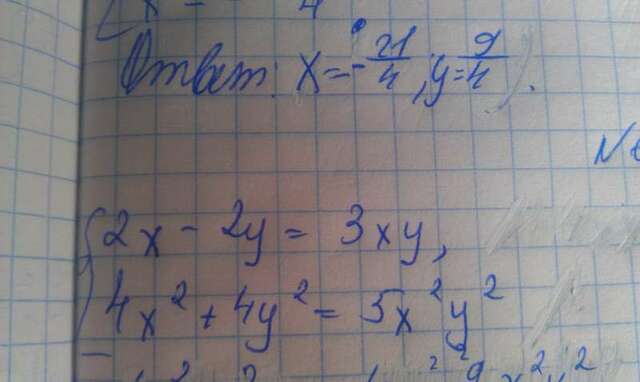 Ответ: x = -21/4; y = 9/4.
2x - 2y = 3xy,
4x² + 4y² = 5x²y²